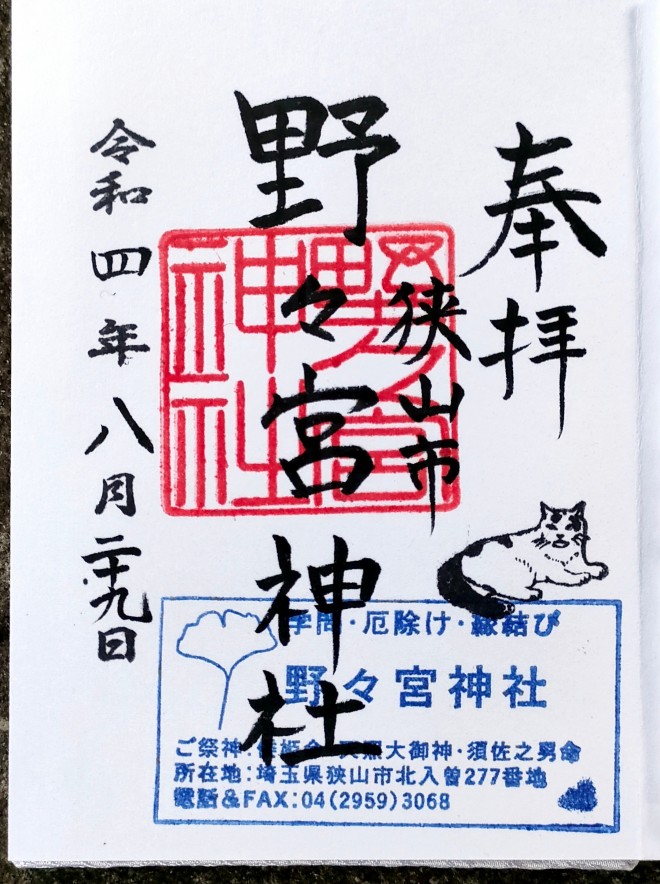 奉拝
狭山市
野々宮神社
令和四年八月二十九日
野々宮神社
学問・厄除け・縁結び
野々宮神社
ご祭神:倭姫命・天照大御神・須佐之男命
所在地:埼玉県狭山市北入曽277番地
電話&FAX:04(2959)3068